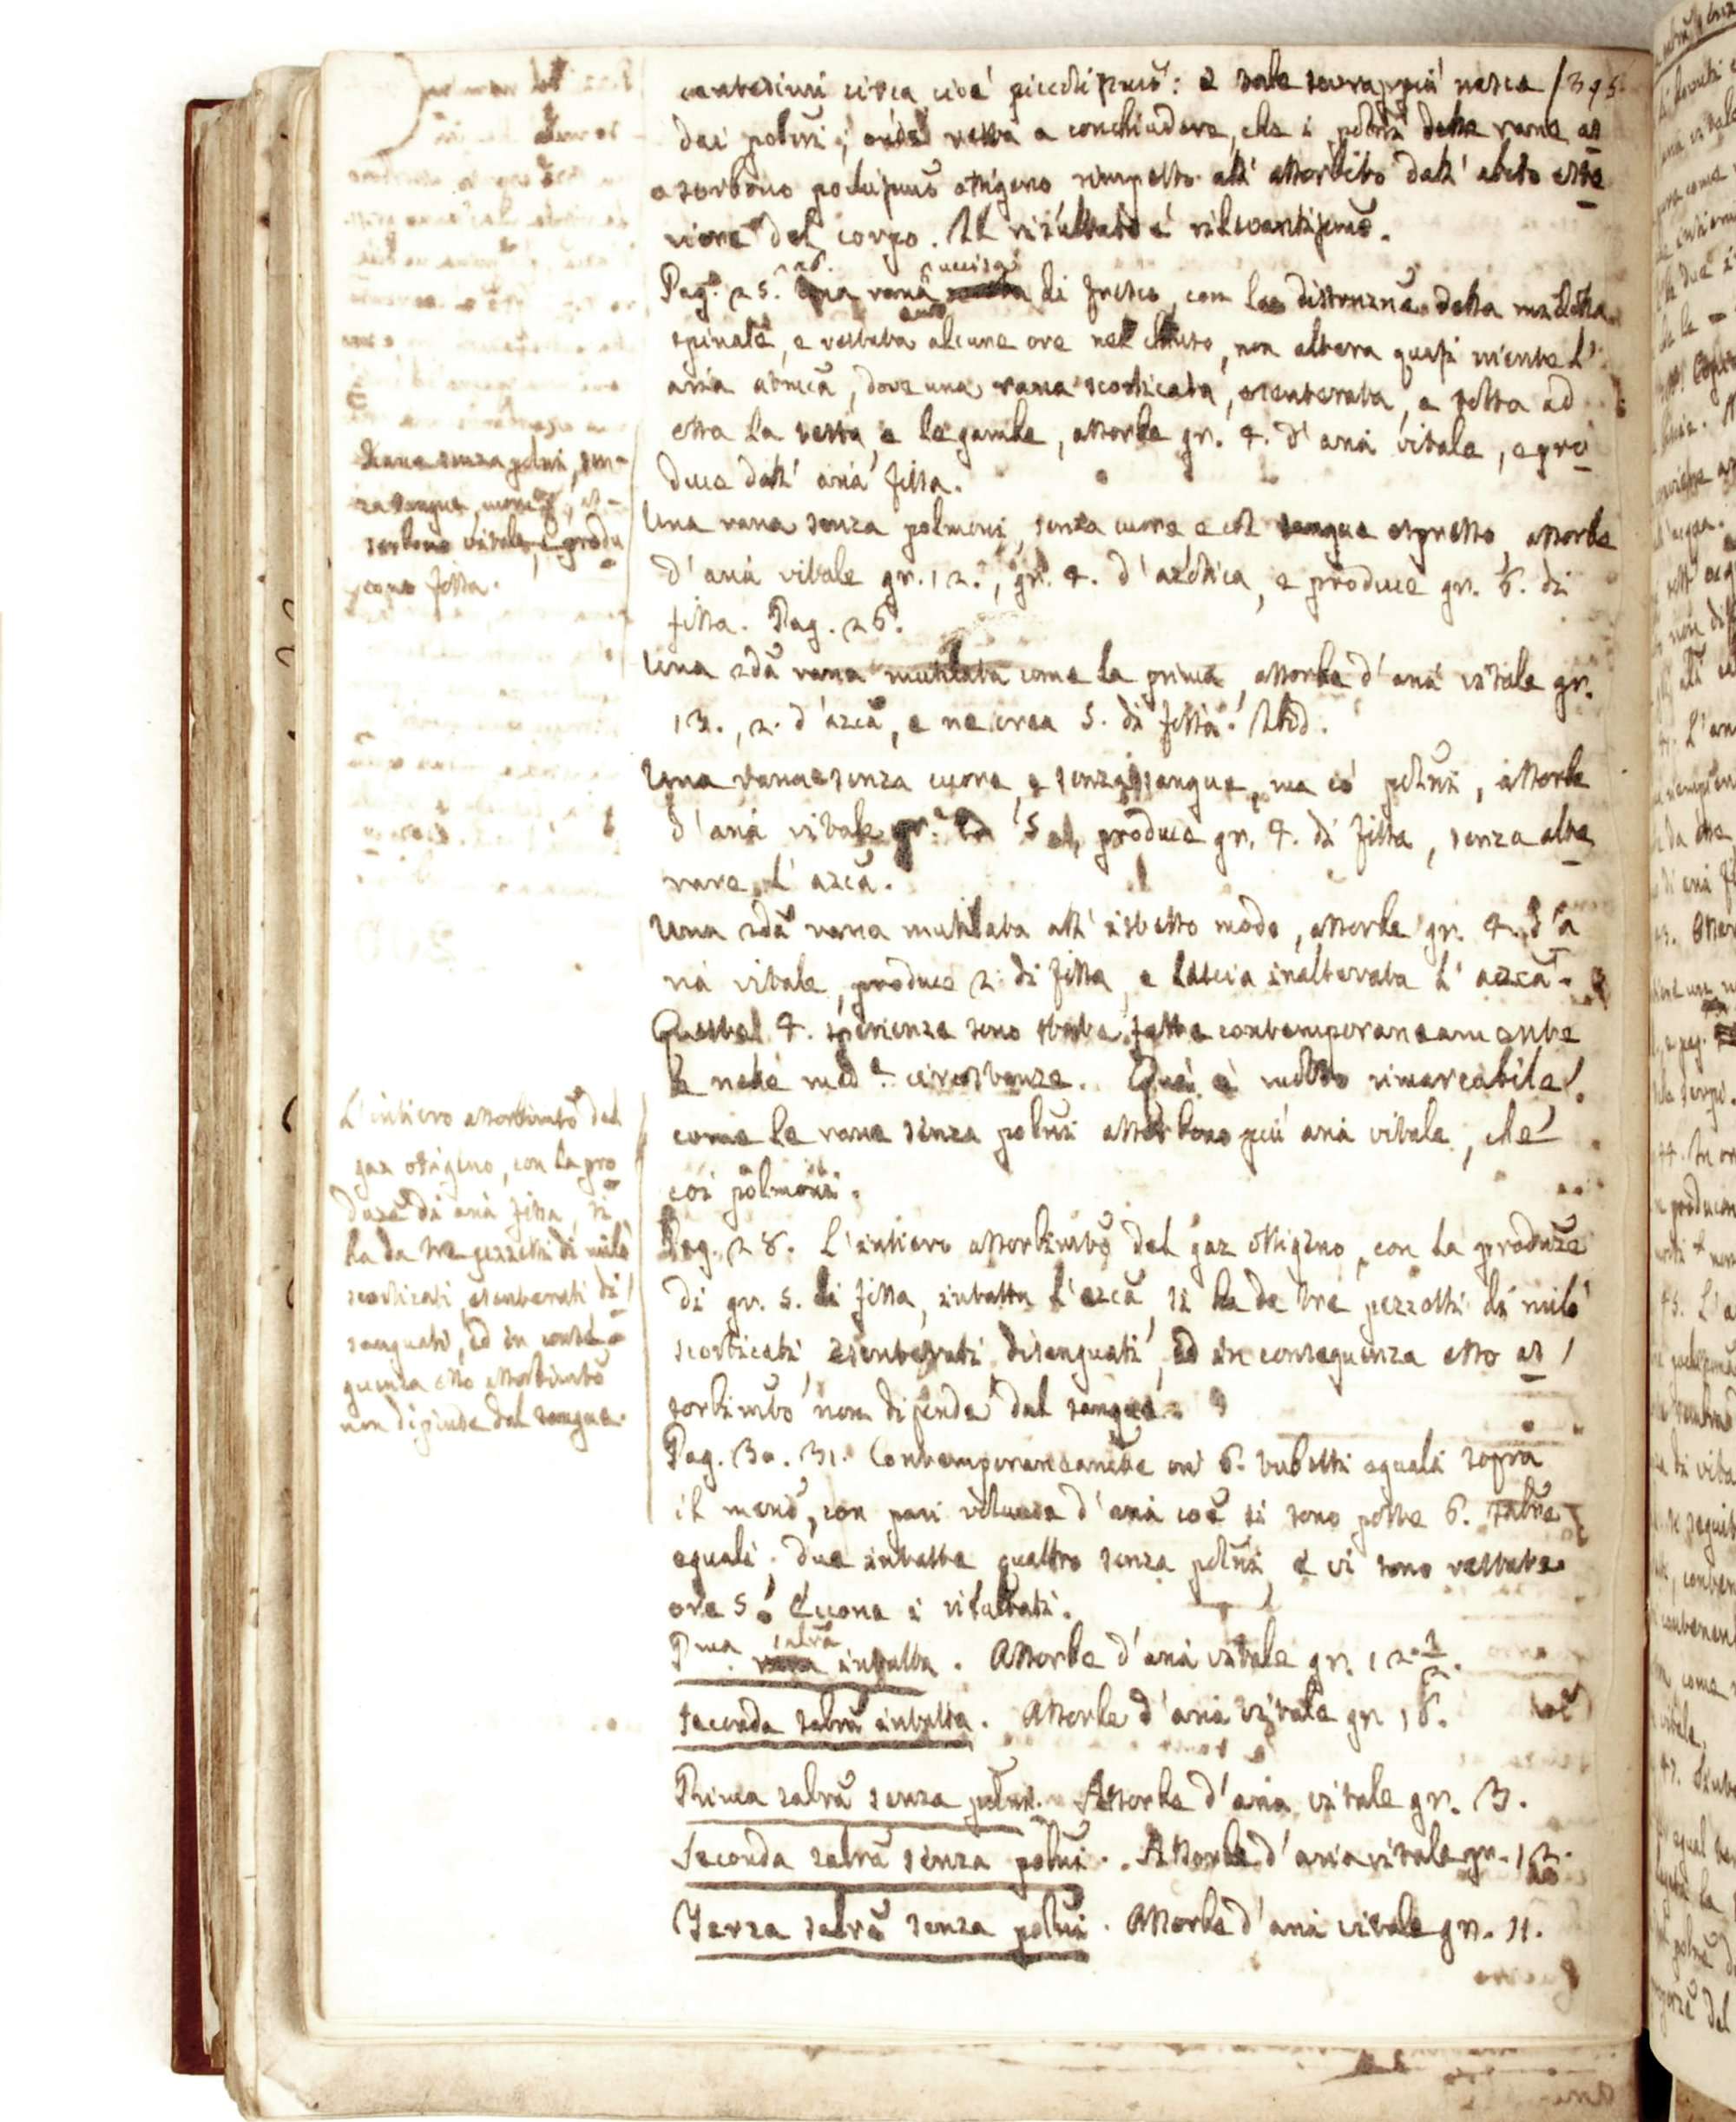 centesimi circa cioè piccolissimo: e tale sovrappiù nasce 395
dai polmi; onde resta a conchiudere, che i polmi delle rane as
sorbono pochissimo ossigeno rimpetto all' assorbito dall' abito este
riore del corpo. Il risultato è rilevantissimo.
Pag. 25. 26. Una rana uccisa di fresco, con la distruzne della midolla
spinale, e restata alcune ore nel chiuso, non altera quasi niente l'
aria atmca, dove una rana scorticata, esenterata, e tolta ad
essa la testa, e le gambe, assorbe gr. 4. d' aria vitale, e pro
duce dell' aria fissa.
Una rana senza polmoni, senza cuore e col sangue espresso, assorbe
d' aria vitale gr. 12., gr. 4. d' azotica, e produce gr. 6. di
fissa. Pag. 26.
Una 2da rana mutilata come la prima, assorbe d' aria vitale gr.
13., 2. d' azca, e ne crea 5. di fissa. Ibid.
Una rana senza cuore, e senza sangue, ma co' polmi, assorbe
d' aria vitale gr. 5, produce gr. 4. di fissa, senza alte
rare l' azca.
Una 2da rana mutilata all' istesso modo, assorbe gr. 4. d' a
ria vitale, produce 2. di fissa, e lascia inalterata l' azca.
Queste 4. sperienze sono state fatte contemporaneamente
e nelle mede circostanze. Quì è molto rimarcabile
come le rane senza polmi assorbono più aria vitale, che
coi polmoni.
Pag. 28. L' intiero assorbimto del gaz ossigeno, con la produze
di gr. 5. di fissa, intatta l' azca, si ha da tre pezzotti di
scorticati, esenterati, disanguati, ed in conseguenza esso as
sorbimto non dipende dal sangue.
Pag. 30. 31. Contemporaneamte in 6. tubetti eguali sopra
il merc, con pari volume d' aria coe si sono poste 6. salre
eguali; due intatte quattro senza polmi, e vi sono restate
ore 5. Eccone i risultati.
Pma salra intatta. Assorbe d' aria vitale gr. 12. 1/2.
Seconda salra intatta. Assorbe d' aria vitale gr. 16.
Prima salra senza polmi. Assorbe d' aria vitale gr. 3.
Seconda salra senza polmi. Assorbe d' aria vitale gr. 12.
Terza salra senza polmi. Assorbe d' aria vitale gr. 11.
Rane senza polmi, sen-
za sangue, as-
sorbono vitale, e produ
cono fissa.
L' intiero assorbimto del
gaz ossigeno, con la pro
duze di aria fissa, si
ha da tre pezzetti di
scorticati, esenterati, di
sanguati, ed in conse
guenza esso assorbimto
non dipende dal sangue.